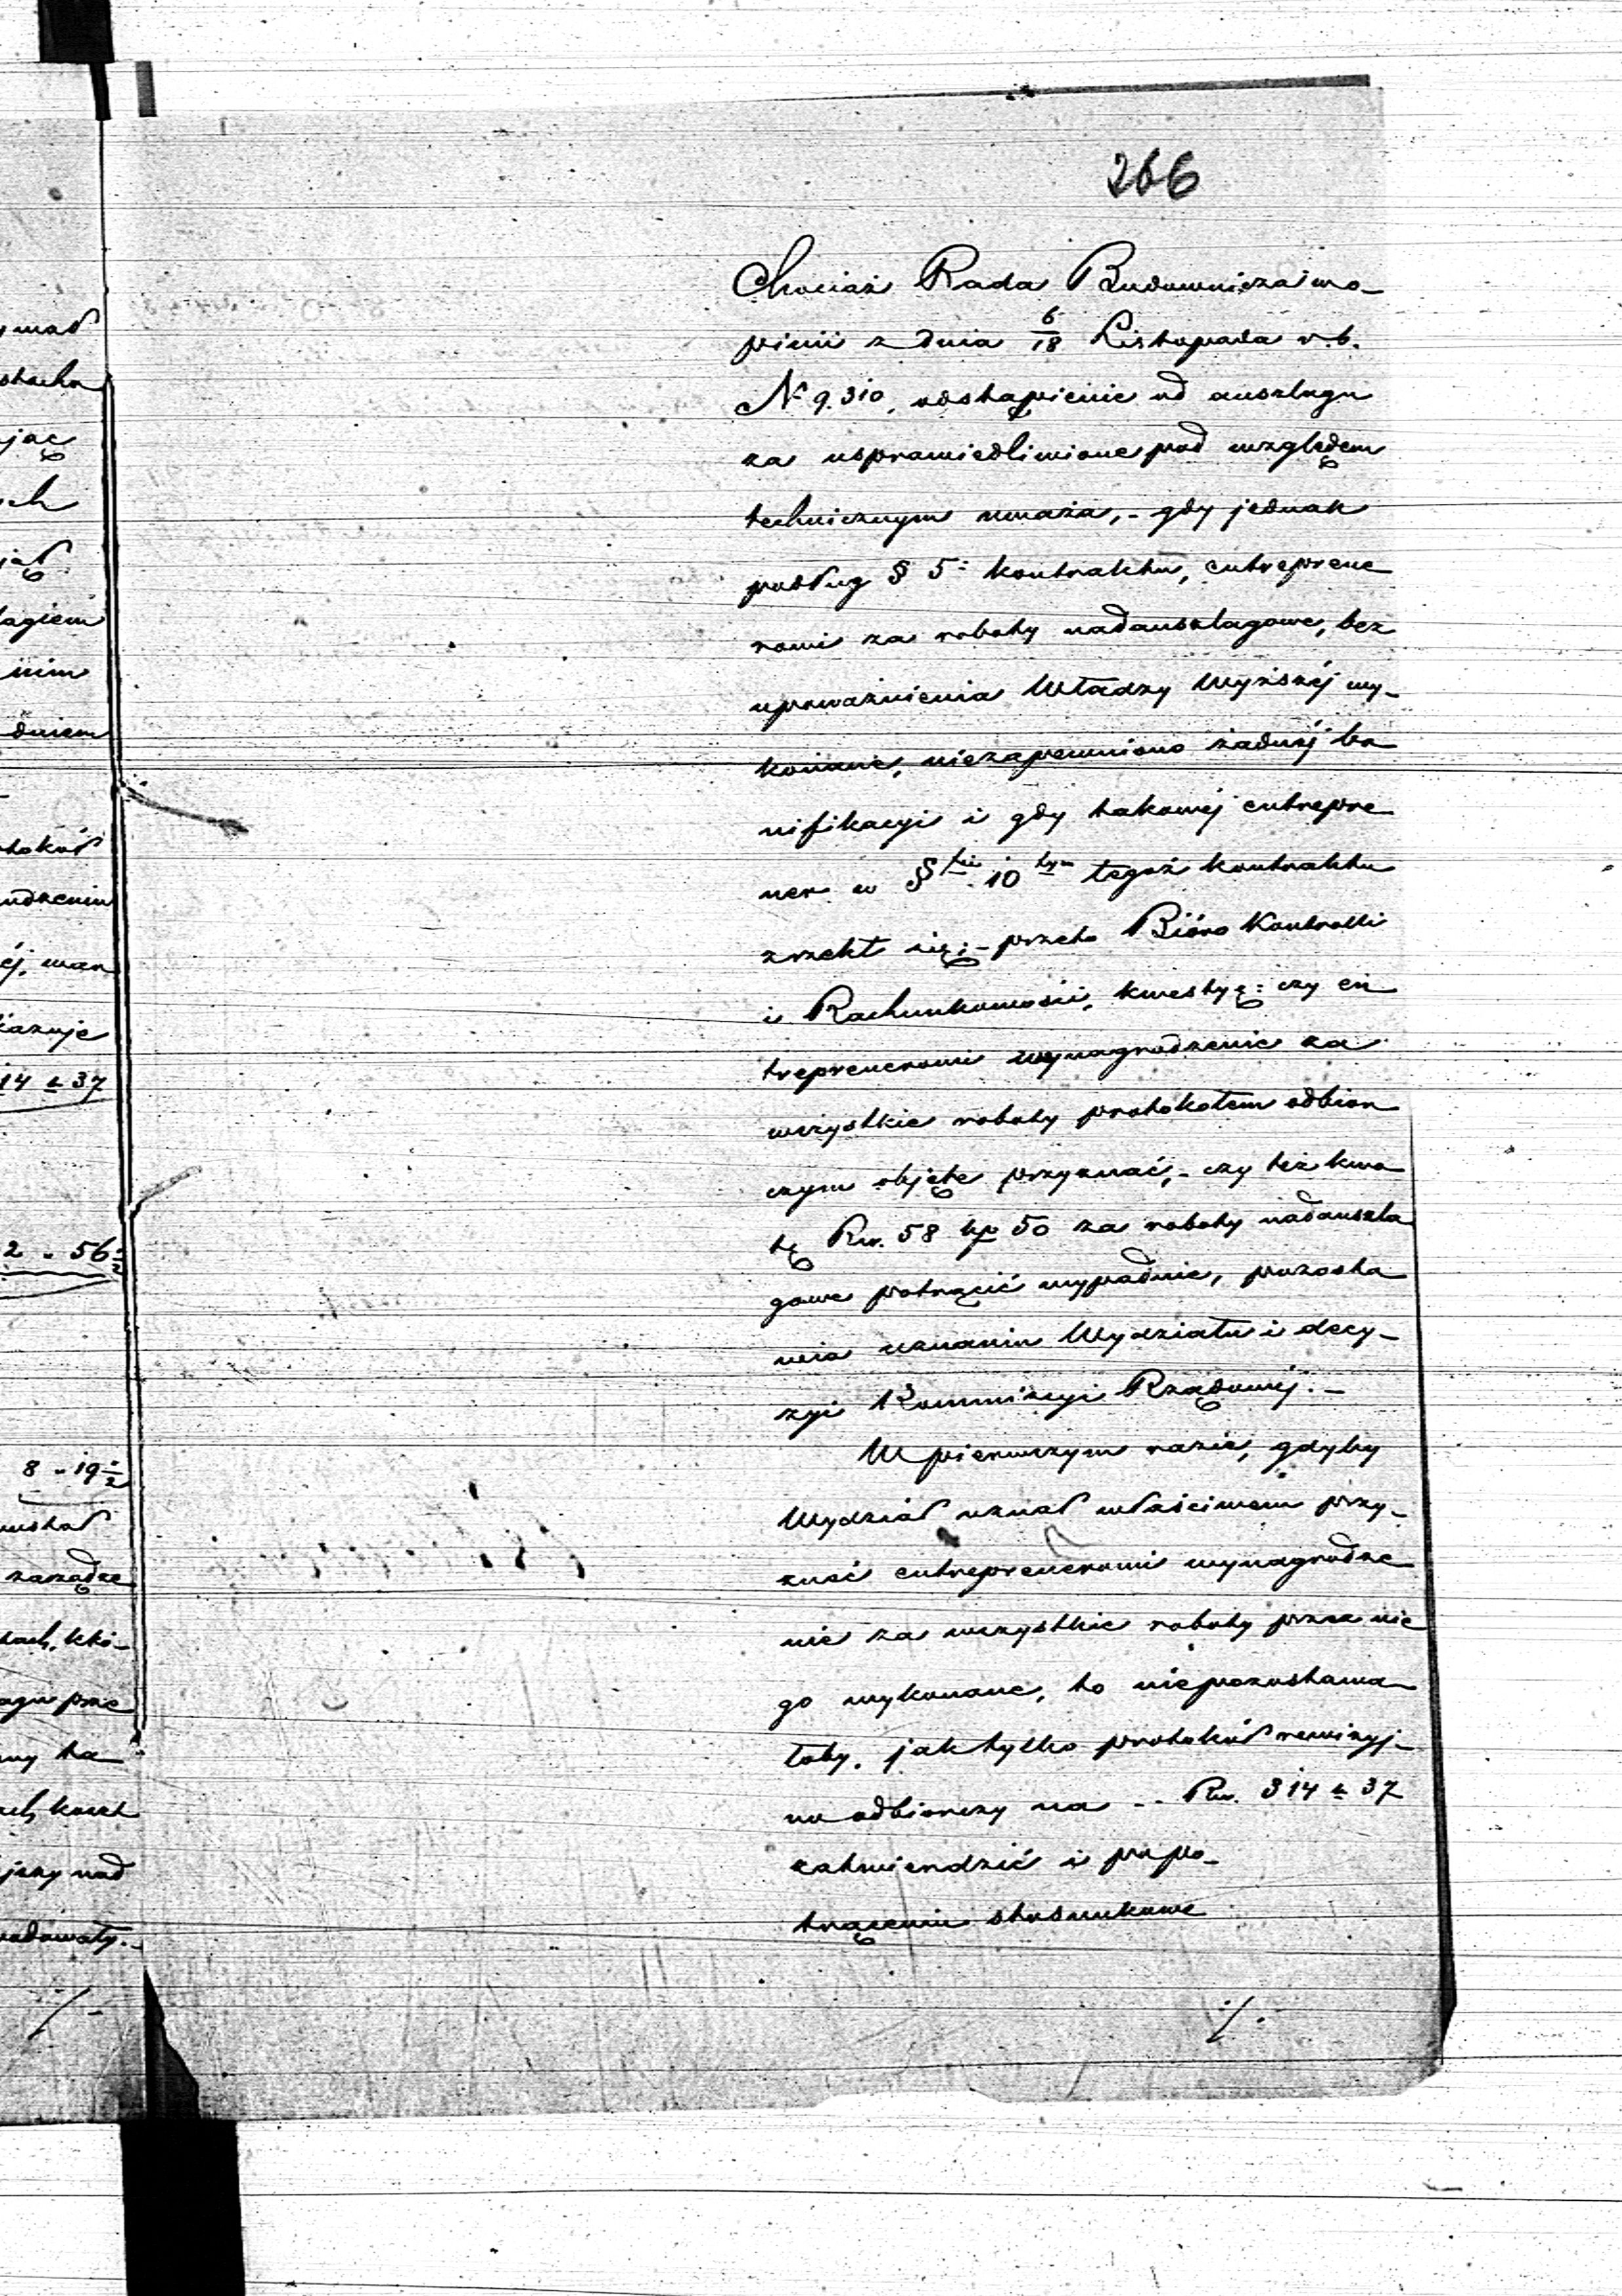 266
Chociaż Rada Budownicza w o-
pinii z dnia 6/18 Listopada r.b.
N 9.310, odstąpienie od anszlagu
za usprawiedliwione pod względem
technicznym uważa, - gdy jednak
podług § 5: kontraktu, entreprene
rowi za roboty nadanszlagowe, bez
upoważnienia Władzy Wyższéj wy-
konane, niezapewniono żadnéj bo
nifikacyi i gdy takowéj entrepre
ner w § 10 tym tegoż kontraktu
zrzekł się; - przeto Bióro Kontrolli
i Rachunkowości, kwestyą: czy en
treprenerowi wynagrodzenie za
wszystkie roboty protokołem odbior
czym objęte przyznać, - czy też kwo
tę Rs. 58 kp 50 za roboty nadanszla
gowe potrącić wypadnie, pozosta
wia uznaniu Wydziału i decy-
zyi Kommissyi Rządowéj. -
W pierwszym razie, gdyby
Wydział uznał właściwem przy-
znać entreprenerowi wynagrodze
nie za wszystkie roboty przez nie
go wykonane, to niepozostawa
łoby, jak tylko protokół rewizyj-
no odbiorczy na -- Rs. 314 k 37
zatwierdzić i po po-
trąceniu stosunkowe
./.
ymał
jąc
ch
jął
łagiem
nim
dniem
tokół
udzeniu
éj, war
kazuje
14 k 37
2 " 56 1/2
8 " 19 1/2
zarządze
tach, któ-
agu prze
ny ta
ach koszt
jący nad